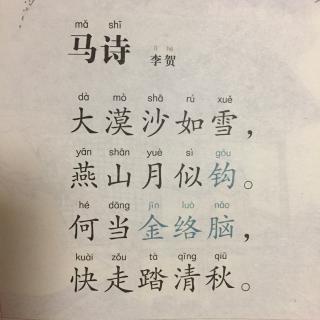 mǎ shī
马诗
lǐ hè
李贺
dà mò shā rú xuě
大漠沙如雪，
yān shān yuè sì gōu
燕山月似钩。
hé dāng jīn luò nǎo
何当金络脑，
kuài zǒu tà qīng qiū
快走踏清秋。